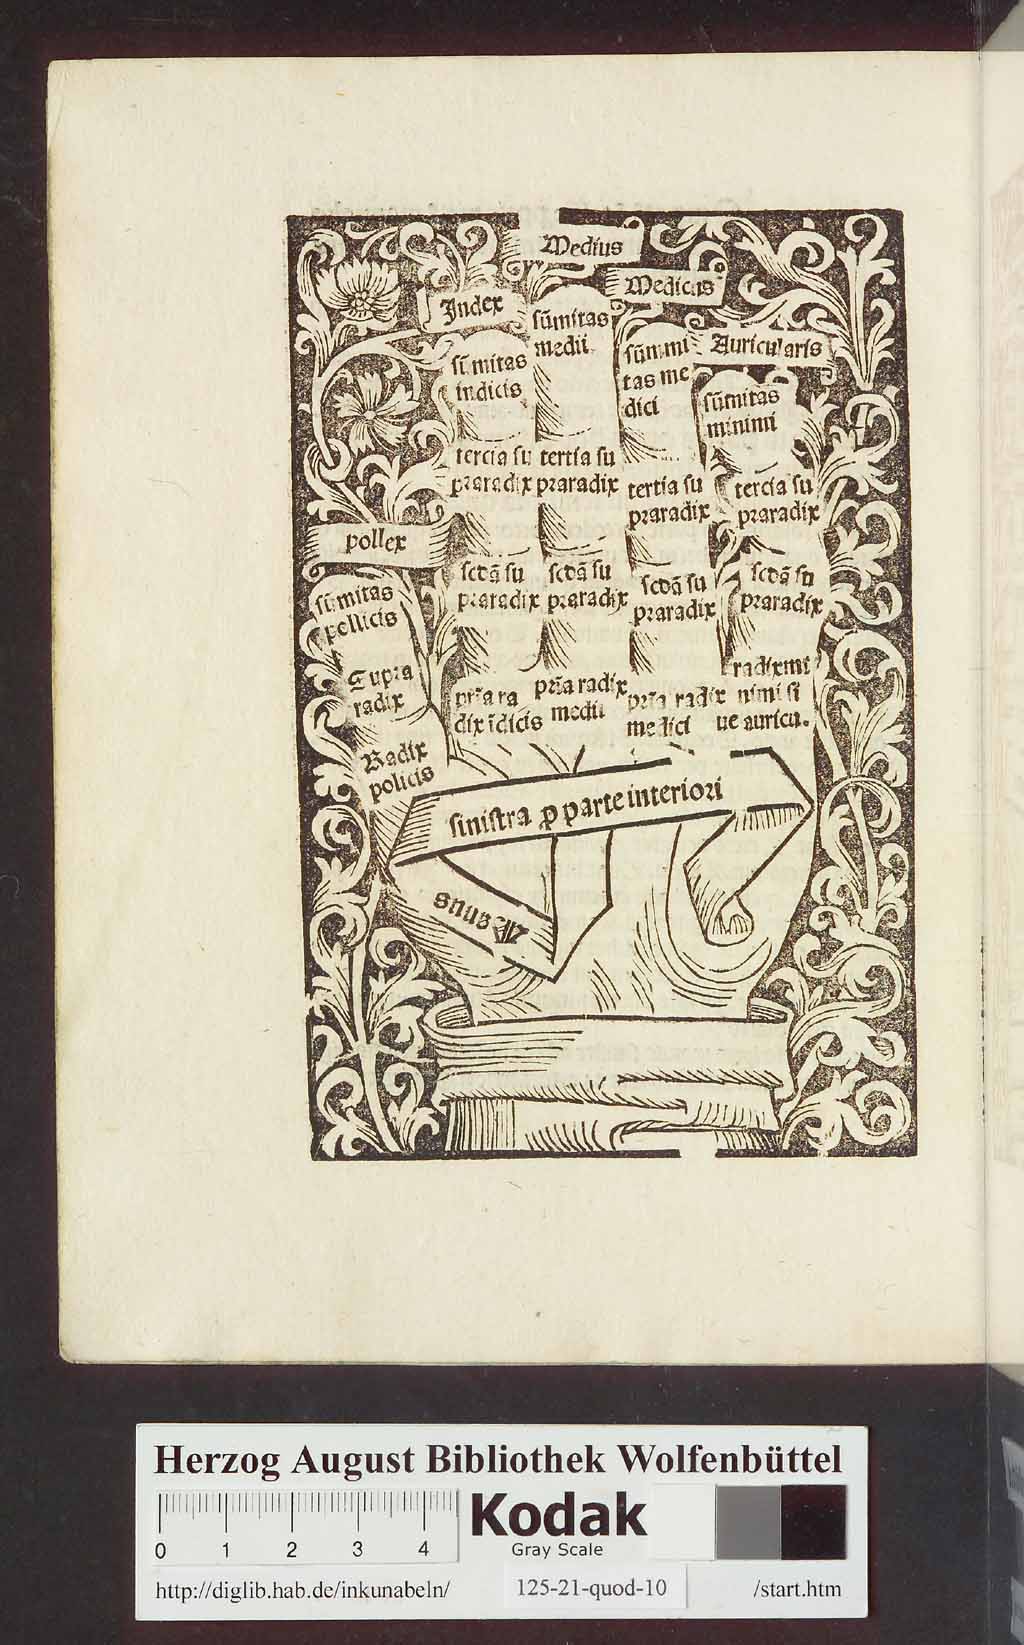 Medius
Medicus
Index
Auricularis
sūmitas
medii
sūmitas
indicis
sūmmi
tas me
dici
sūmitas
minimi
tercia su
praradix
tertia su
praradix
tertia su
praradix
tercia su
praradix
pollex
scdā su
praradix
scdā su
praradix
scdā su
praradix
scdā su
praradix
sūmitas
pollicis
Supra
radix
pria ra
dix īdicis
pria radix
medii
pria radix
medici
radix mi
nimi si
ue auricu.
Radix
policis
sinistra ꝓ parte interiori
Manus
Herzog August Bibliothek Wolfenbüttel
0 1 2 3 4
Kodak
Gray Scale
http://diglib.hab.de/inkunabeln/ 125-21-quod-10 /start.htm